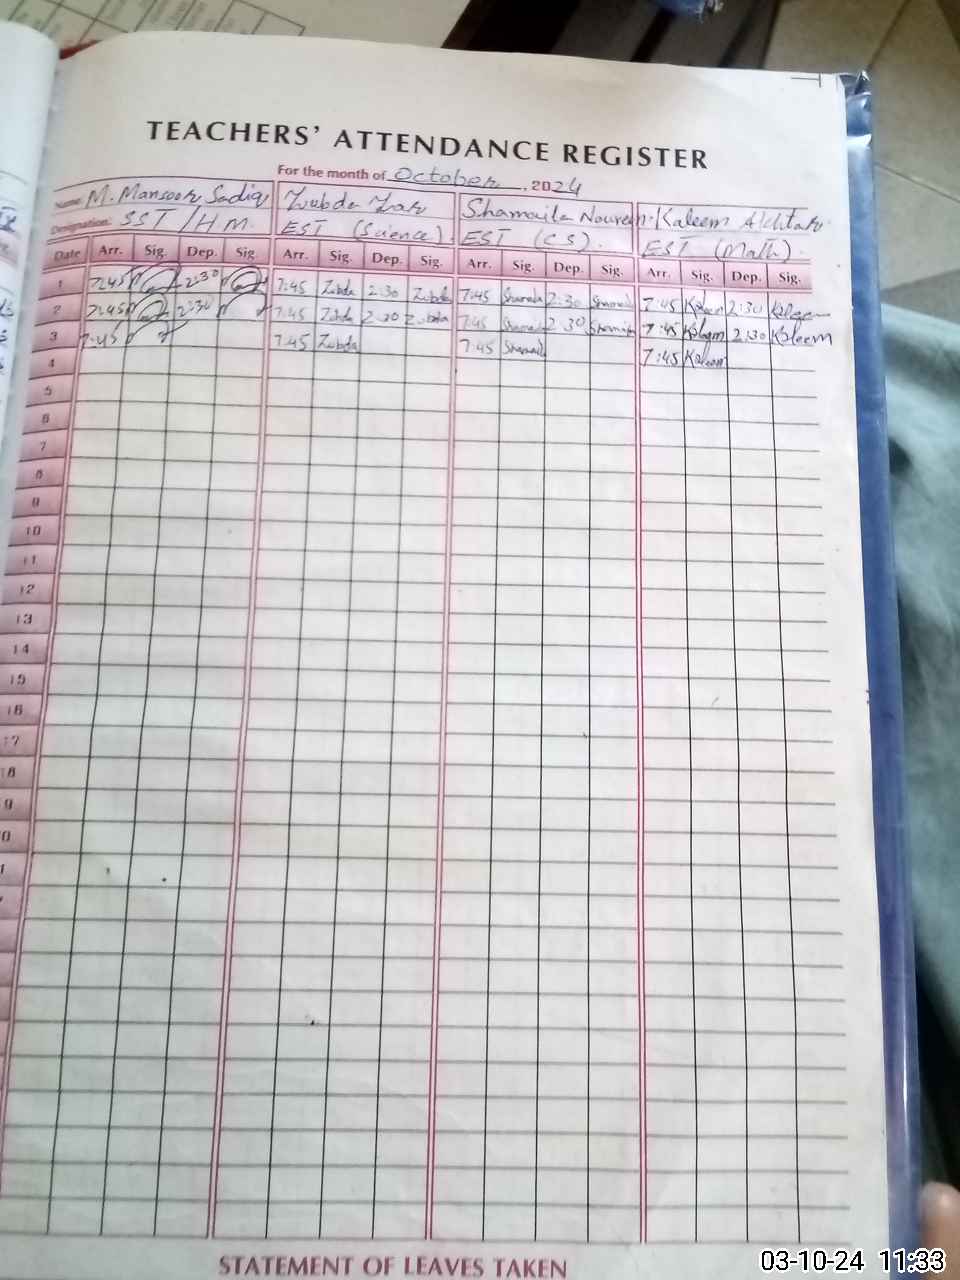 TEACHERS' ATTENDANCE REGISTER
For the month of October, 2024
Name: M. Mansoor Sadiq Zubda Zar Shamaila Noureen Kaleem Akhtar
Designation: SST / H.M. EST (Science) EST (CS). EST (Math).
Date Arr. Sig. Dep. Sig. Arr. Sig. Dep. Sig. Arr. Sig. Dep. Sig. Arr. Sig. Dep. Sig.
1 7:45 2:30 7:45 Zubda 2:30 Zubda 7:45 2:30 7:45 Kaleem 2:30 Kaleem
2 7:45 2:30 7:45 Zubda 2:30 Zubda 7:45 2:30 7:45 Kaleem 2:30 Kaleem
3 7:45 7:45 Zubda 7:45 7:45 Kaleem
4
5
6
7
8
9
10
11
12
13
14
15
16
17
18
9
0
1
STATEMENT OF LEAVES TAKEN
03-10-24 11:33